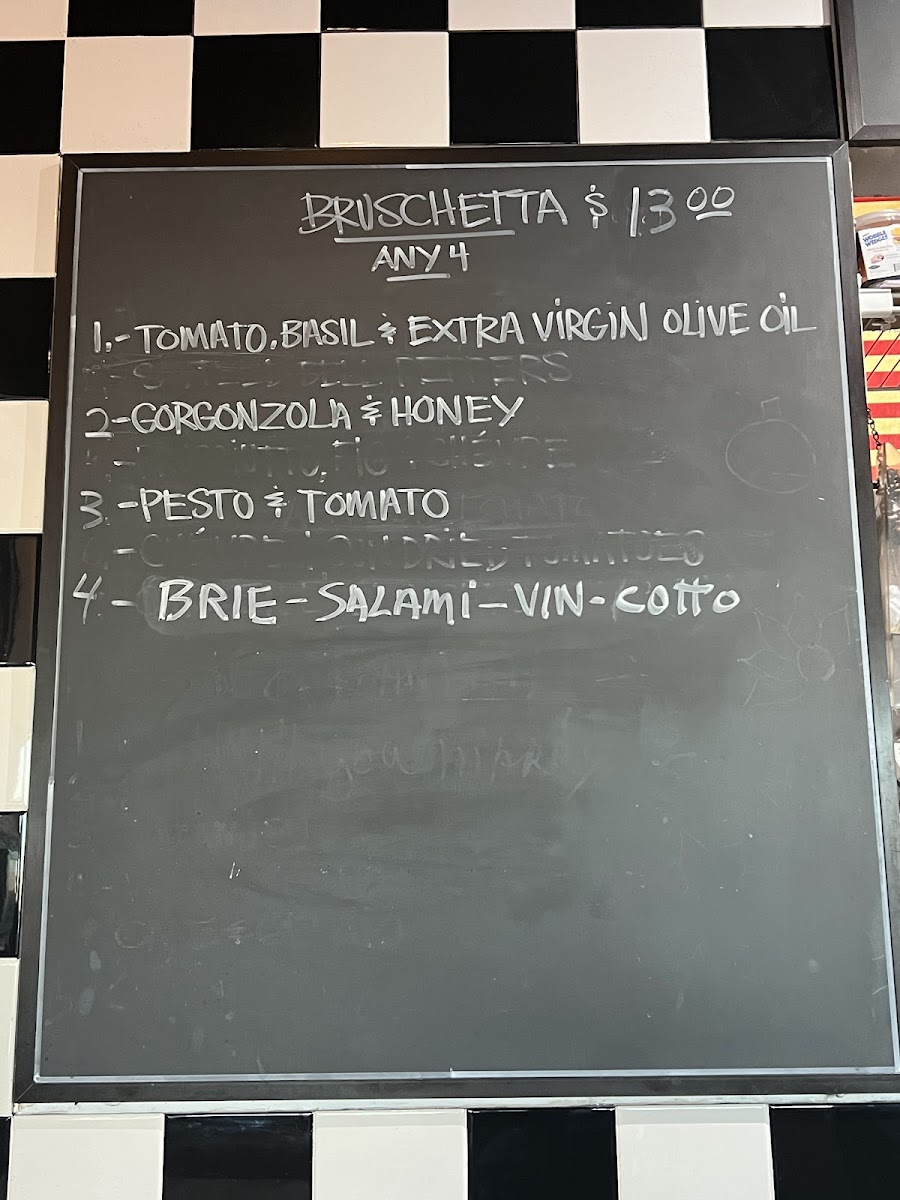 BRUSCHETTA $ 13.00
ANY 4
1.- TOMATO, BASIL & EXTRA VIRGIN OLIVE OIL
2-GORGONZOLA & HONEY
3.-PESTO & TOMATO
4.- BRIE-SALAMI-VIN-COTTO